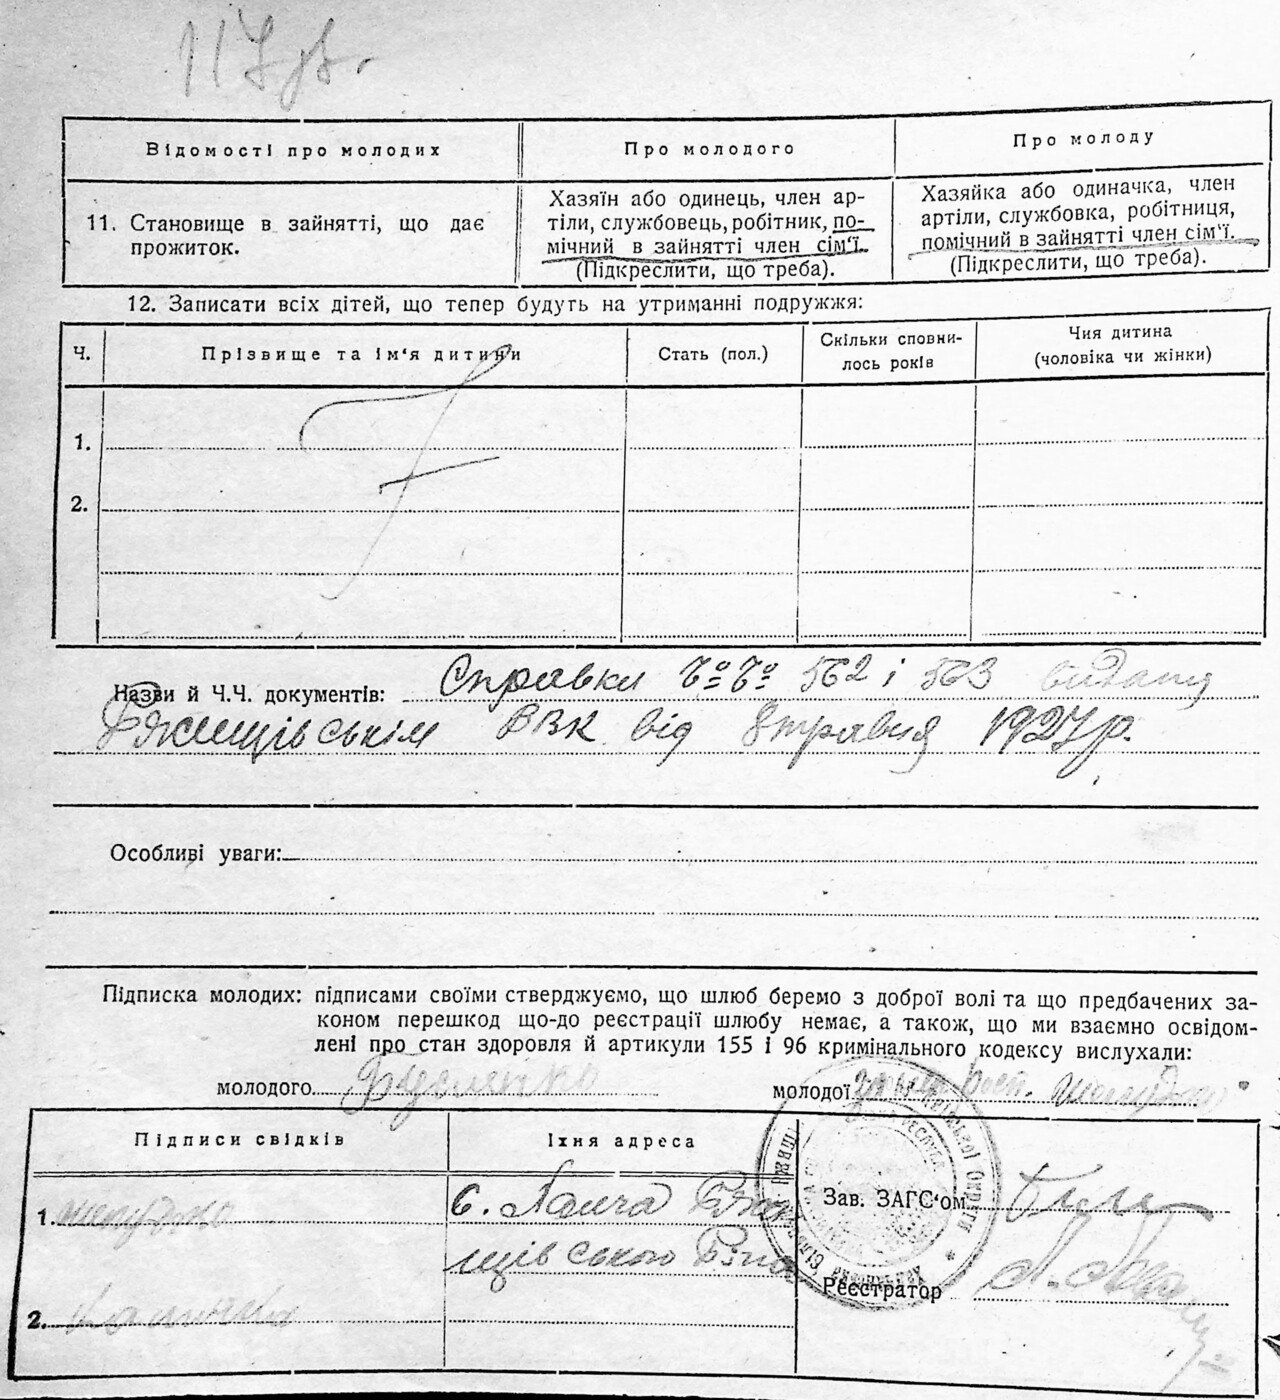 117 зв.
Відомості про молодих
Про молодого
Про молоду
11. Становище в зайнятті, що дає
прожиток.
Хазяїн або одинець, член ар-
тіли, службовець, робітник, по-
мічний в зайнятті член сім'ї.
(Підкреслити, що треба).
Хазяйка або одиначка, член
артіли, службовка, робітниця,
помічний в зайнятті член сім'ї.
(Підкреслити, що треба).
12. Записати всіх дітей, що тепер будуть на утриманні подружжя:
Ч.
Прізвище та ім'я дитини
Стать (пол.)
Скільки сповни-
лось років
Чия дитина
(чоловіка чи жінки)
1.
2.
Назви й Ч.Ч. документів: Справки №№ 562 і 563 видані
Ржищівським ВВК від 8 травня 1927 р.
Особливі уваги:
Підписка молодих: підписами своїми стверджуємо, що шлюб беремо з доброї волі та що предбачених за-
коном перешкод що-до реєстрації шлюбу немає, а також, що ми взаємно освідом-
лені про стан здоровля й артикули 155 і 96 кримінального кодексу вислухали:
молодого
молодої
Підписи свідків
Їхня адреса
1.
с.
Зав. ЗАГС'ом
щівського
2.
Реєстратор